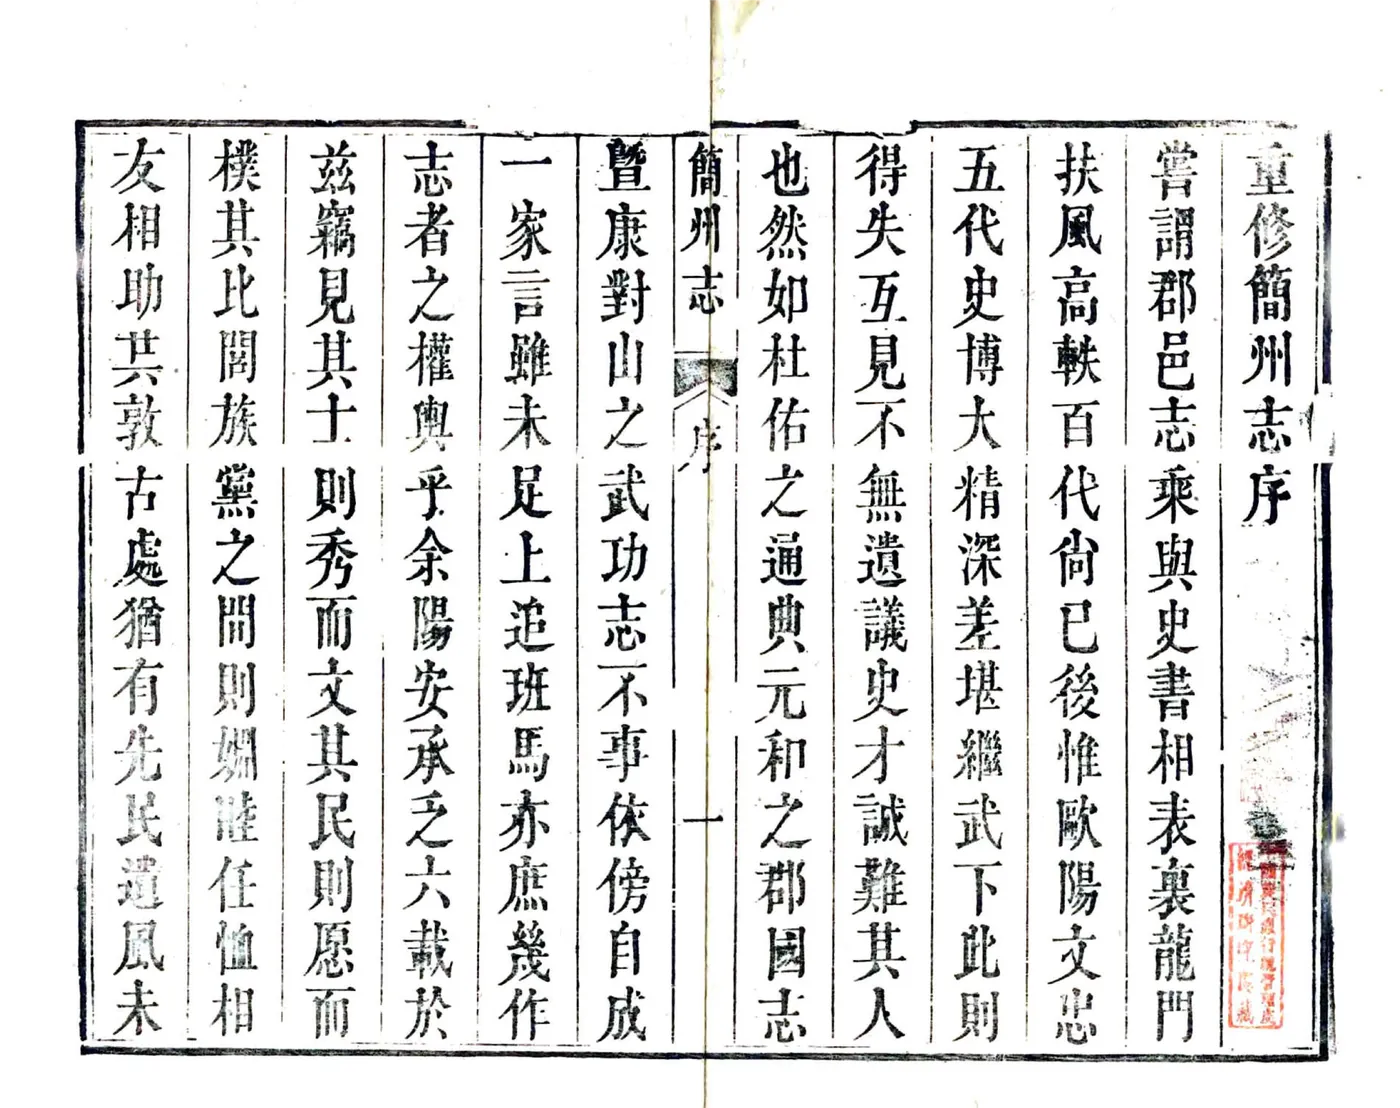 重修簡州志序
嘗謂郡邑志乘與史書相表裏龍門
扶風高軼百代尙已後惟歐陽文忠
五代史博大精深差堪繼武下此則
得失互見不無遺議史才誠難其人
也然如杜佑之通典元和之郡國志
簡州志
序
一
暨康對山之武功志不事依傍自成
一家言雖未足上追班馬亦庶幾作
志者之權輿乎余陽安承乏六載於
兹竊見其士則秀而文其民則愿而
樸其比閭族黨之間則婣睦任恤相
友相助共敦古處猶有先民遺風未